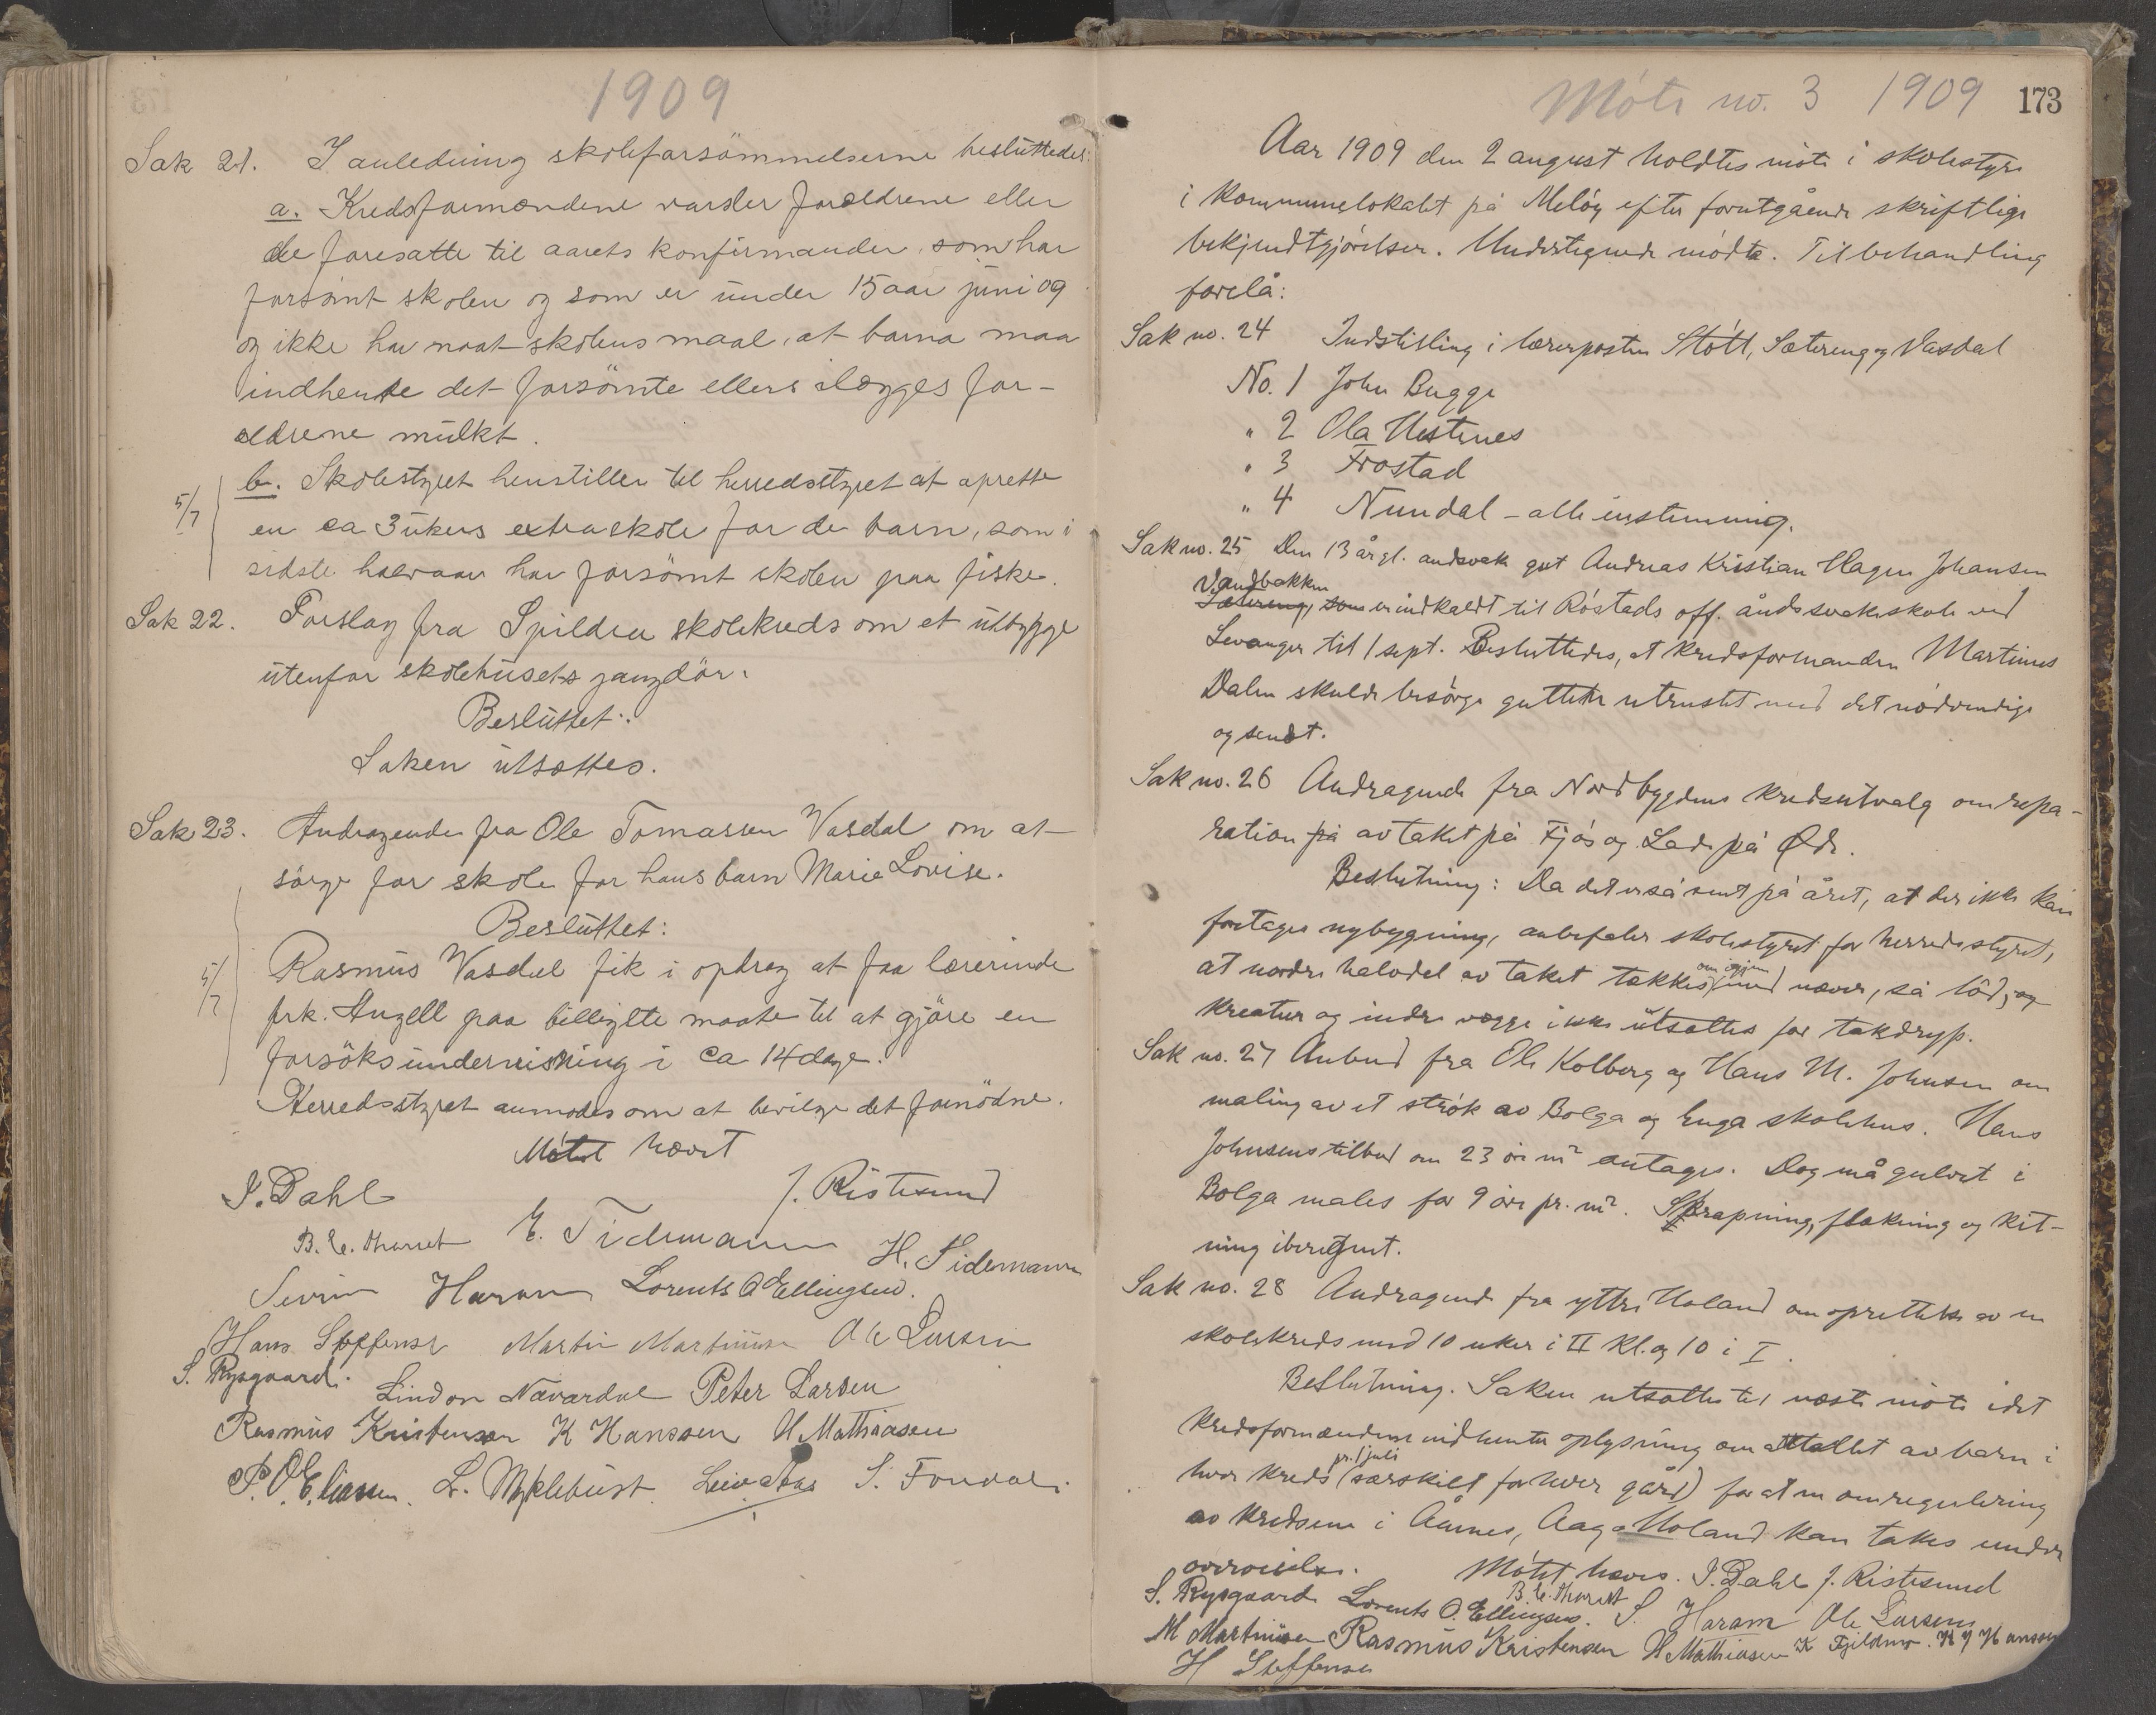 1909
Sak 21. I anledning skoleforsömmelserne besluttedes:
a. Kredsformændene varsler forældrene eller
de foresatte til aarets konfirmander, som har
forsömt skolen og som er under 15 aar juni 09
og ikke har naat skolens maal, at barna maa
indhente det forsömte ellers ilægges for-
ældrene mulkt.
b. Skolestyret henstiller til herredsstyret at oprette
5/7 en ca 3 ukers extraskole for de barn, som i
sidste halvaar har forsömt skolen paa fiske.
Sak 22. Forslag fra Spildra skolekreds om et utbygge
utenfor skolehusets gangdör.
Besluttet:
Saken utsættes.
Sak 23. Andragende fra Ole Tomassen Vasdal om at
sörge for skole for hans barn Marie Lovise.
Besluttet:
5/7 Rasmus Vasdal fik i opdrag at faa lærerinde
frk. Angell paa billigste maate til at gjöre en
forsöksundervisning i ca 14 dage.
Herredsstyret anmodes om at bevilge det fornödne.
Mötet hævet
I. Dahl J. Ristesund
B. C. E. Tidemann H. Tidemann
Severin Haram Lorents O Ellingsen.
Hans Steffensen Martin Martinusen Ole Larsen
S. Rysgaard. Lindor Navardal Peter Larsen
Rasmus Kristensen K Hanssen H Mathiasen
P. O. Eliassen. L. Myklebust S. Fondal.
Möte no. 3 1909 173
Aar 1909 den 2 august holdtes möte i skolestyre
i kommunelokalet på Melöy efter forutgående skriftlige
bekjendtgjörelser. Undertegnede mödte. Til behandling
forelå:
Sak no. 24 Indstilling i lærerposten Stött, Sætereng og Vasdal
No. 1 John Bugge
" 2 Ola Vestenes
" 3 Frostad
" 4 Nundal - alle enstemmig.
Sak no. 25 Den 13 år gl. andsvak gut Andreas Kristian Hagen Johansen
Vandbakken
Sætereng, som er indkaldt til Röstads off. åndssvakeskole ved
Levanger til 1 sept. Besluttedes, at kredsformanden Martines
Dalen skulde besörge gutten utrustet med det nödvendige
og sendt.
Sak no. 26 Andragende fra Nordbygdens kredsutvalg om repa-
ration på av taket på Fjös og Lade på Øde.
Beslutning: Da det er så sent på året, at der ikke kan
foretages nybygning, anbefaler skolestyret for herredsstyret,
at nordre halvdel av taket tækkes om igjen med næver, så löd, og
kreatur og indre vægge ikke utsættes for takdryp.
Sak no. 27 Anbud fra Ole Kolberg og Hans M. Johnsen om
maling av et strök av Bolga og Enga skolehus. Hans
Johnsens tilbud om 23 öre m² antages. Dog må gulvet i
Bolga males for 9 öre pr. m². Skrapning, flækning og kit-
ning iberegnet.
Sak no. 28 Andragende fra yttre Holand om oprettelse av en
skolekreds med 10 uker i II kl. og 10 i I.
Beslutning. Saken utsættes til næste möte idet
kredsformændene indhenter oplysning om antallet av barn i
hver kreds pr. 1 juli (særskilt for hver gård) for at en omregulering
av kredsene i Åmnes, Aag o Holand kan takes under
overveielse. Mötet hæves. I. Dahl J. Ristesund
S. Rysgaard Lorents O. Ellingsen. B. C. S. Haram Ole Larsen
M Martinusen Rasmus Kristensen H Mathiasen K Fjeldmo. K J Hanssen
H Steffensen